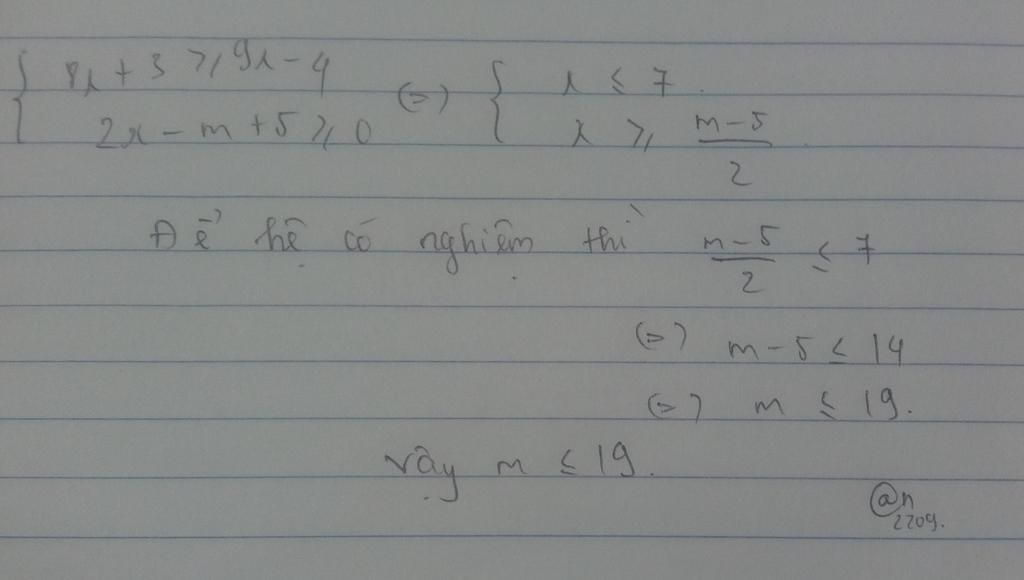 { 8x + 3 ≥ 9x - 4 (=) { x ≤ 7.
2x - m + 5 ≥ 0 x ≥ (m-5)/2.
Để hệ có nghiệm thì (m-5)/2 ≤ 7
(=) m - 5 ≤ 14
(=) m ≤ 19.
Vậy m ≤ 19.
@n
2209.